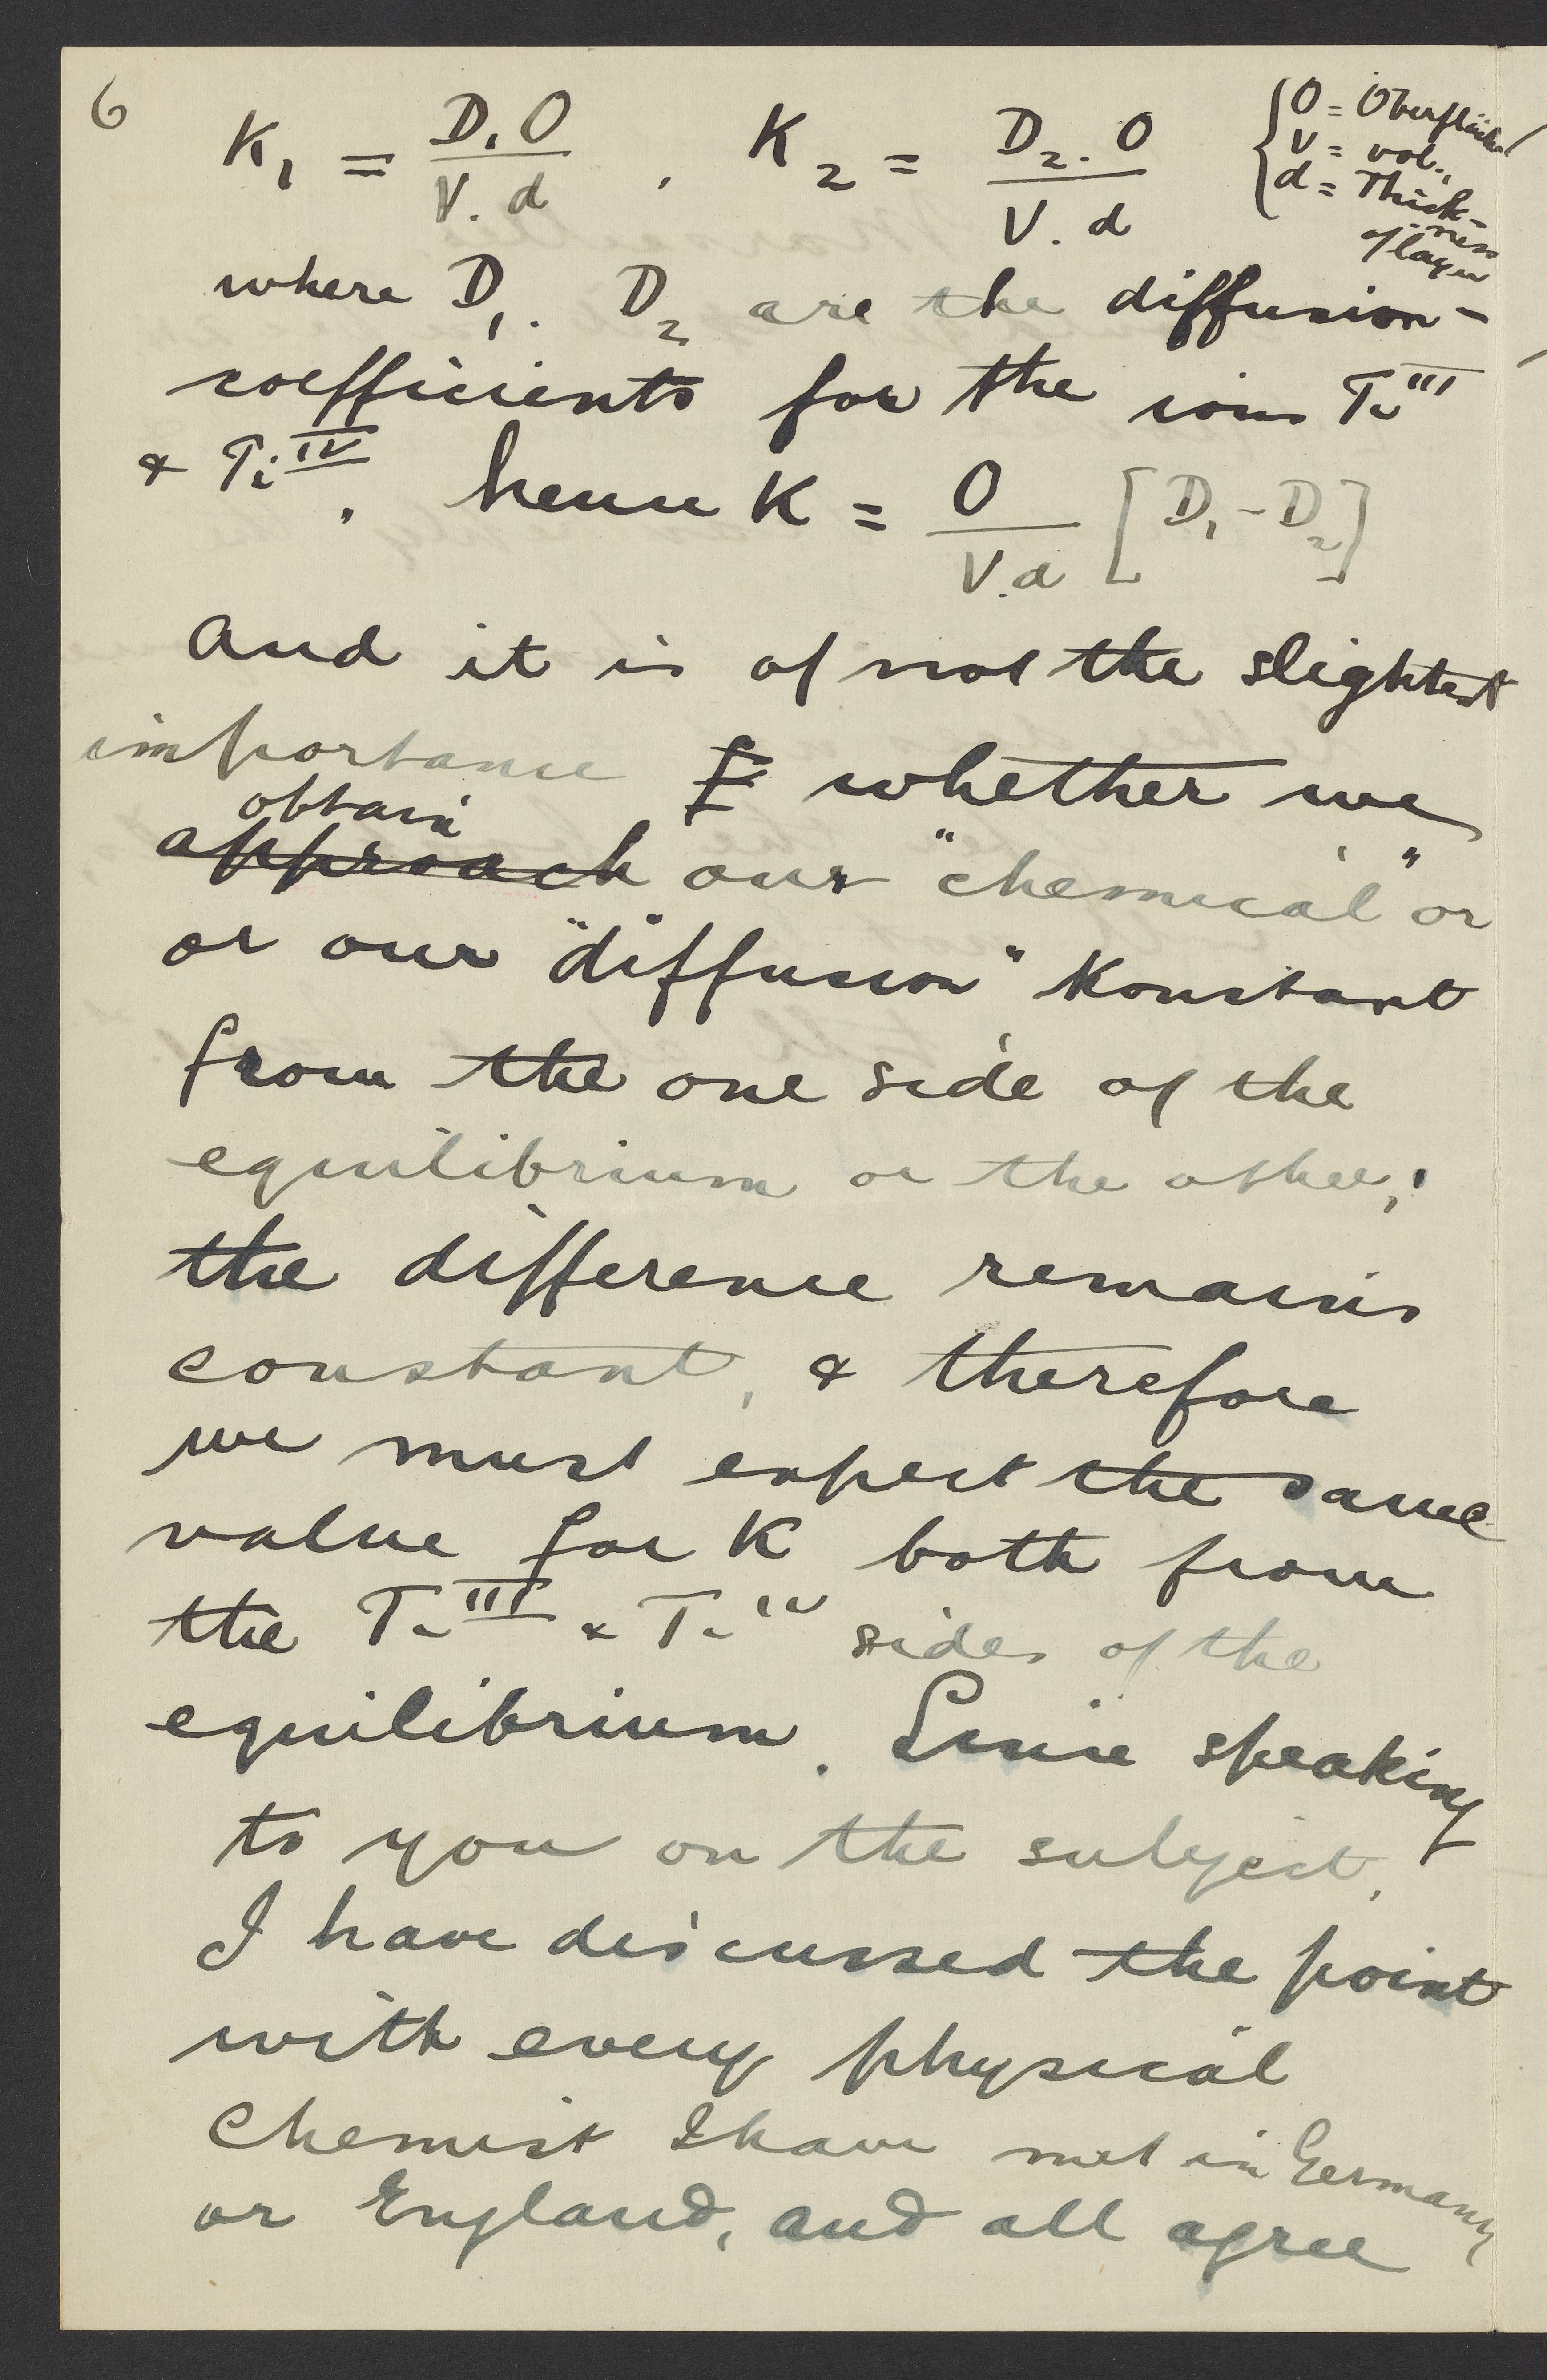 6
K₁ = D₁O / V.d , K₂ = D₂.O / V.d
{O = Oberfläche
V = vol.,
d = Thick-
ness
of layer
where D₁. D₂ are the diffusion-
coefficients for the ions Tiᴵᴵᴵ
& Tiᴵⱽ, hence K = O / V.d [D₁ - D₂]
and it is of not the slightest
importance whether we
obtain
approach our "chemical" or
or our "diffusion" Konstant
from the one side of the
equilibrium or the other;
the difference remains
constant, & therefore
we must expect the same
value for K both from
the Tiᴵᴵᴵ & Tiᴵⱽ sides of the
equilibrium. Since speaking
to you on the subject,
I have discussed the point
with every physical
Chemist I have met in Germany
or England, and all agree